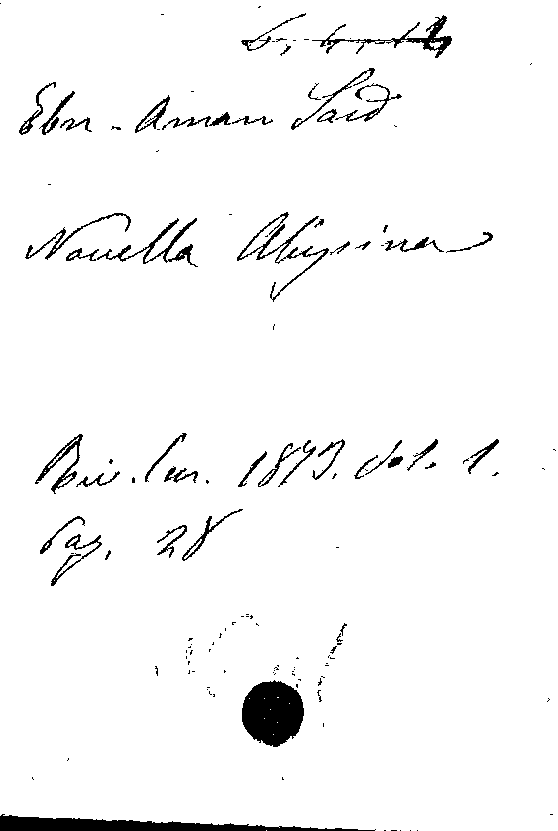 6, 4, 12
Ebn-Aman Said
Novella Abysina
Riv. Eur. 1873. Vol. 1.
Pag. 28